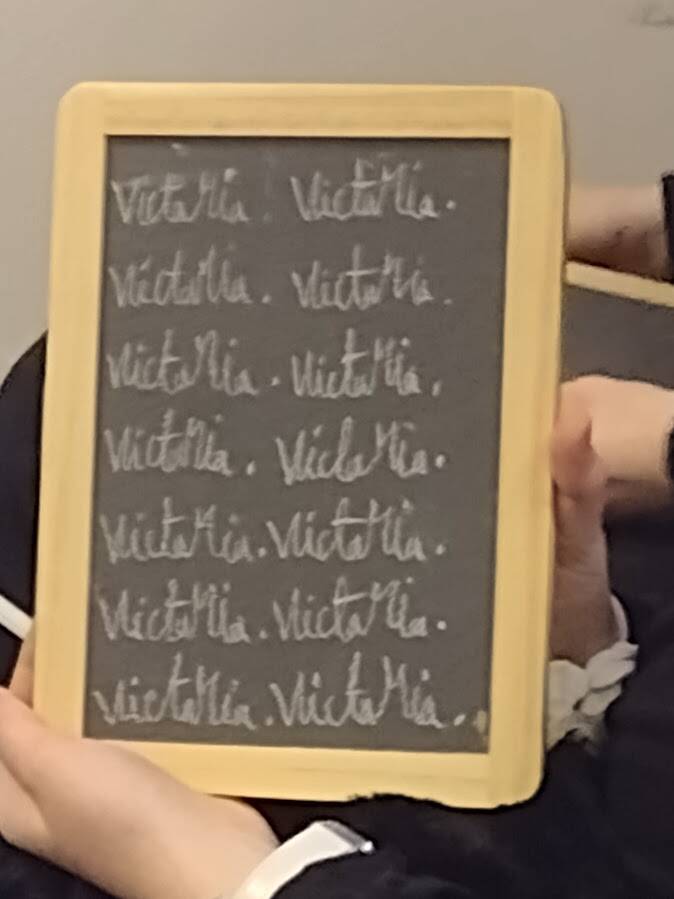 Victoria. Victoria.
Victoria. Victoria.
Victoria. Victoria.
Victoria. Victoria.
Victoria. Victoria.
Victoria. Victoria.
Victoria. Victoria.